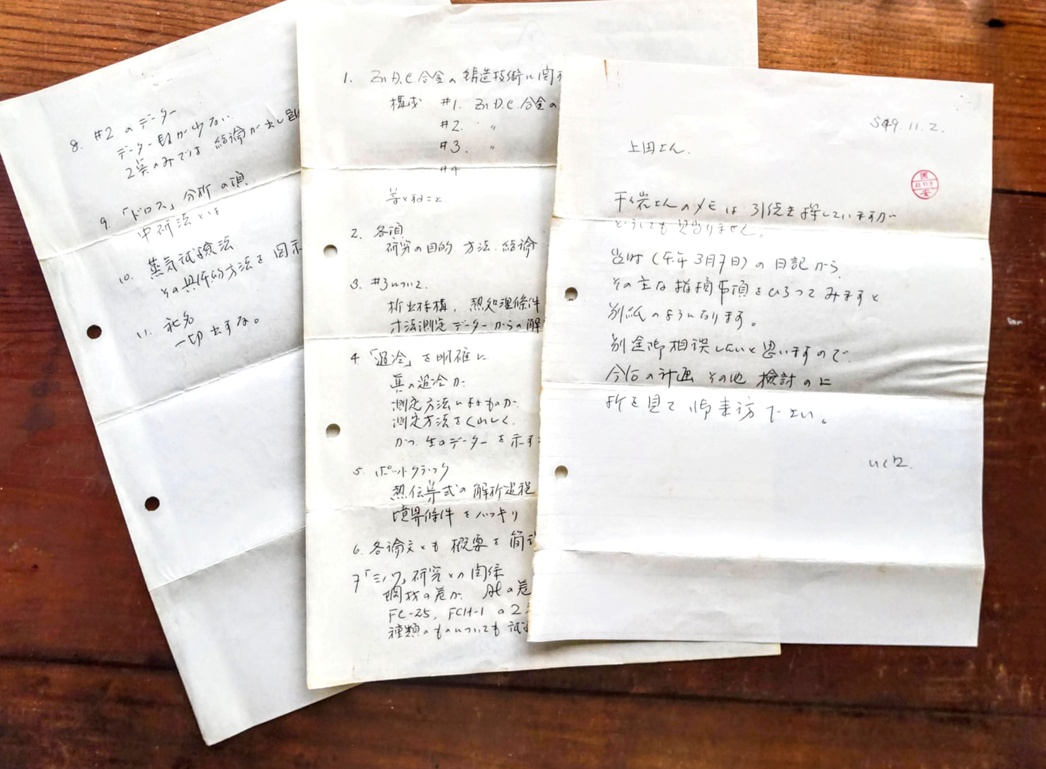 8. #2 のデーター
データー自身が少ない.
2英のみでは 結論が出し
9. 「ドロス」分析の項
中研法とは
10. 蒸気試験法
その具体的方法を図示
11. 社名
一切出すな。
1. ZnD.C 合金の鋳造技術に関
構成 #1. ZnD.C.合金の
#2. 〃
#3. 〃
#4
等々ねこと
2. 各項
研究の目的. 方法. 結論
3. #3について.
析出在構, 熱処理條件
寸法測定データーからの解
4 「過冷」を明確に
真の過冷か.
測定方法によるものか
測定方法をくわしく.
かつ 生のデーターを示す
5. ポートクラック
熱伝導式の解析過程
境界條件をハッキリ
6. 各論文とも 概要を簡
7 「ミノワ」研究との関係
鋼材の差か.
FC-25, FCH-1 の2
種類のものについても 試
S49.11.2.
上田さん.
千々岩さんのメモは 引続き探していますが
どうしても見当りません。
当時(午年3月7日)の日記から,
その主な指摘事項をひろってみますと
別紙のようになります。
別途御相談したいと思いますので
今后の計画 その他 検討の上
折を見て 御来訪下さい。